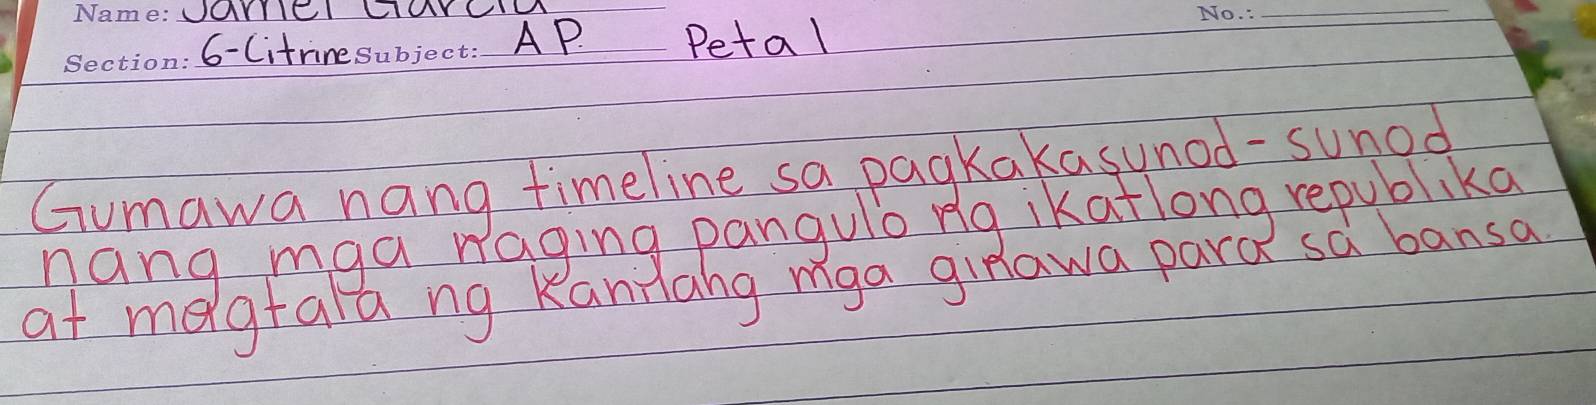 Name: Jamel Garcia
No.:
Section: 6-Citrine Subject: AP. Petal
Gumawa nang timeline sa pagkakasunod-sunod
nang mga naging pangulo ng ikatlong republika
at magtala ng kanilang mga ginawa para sa bansa.